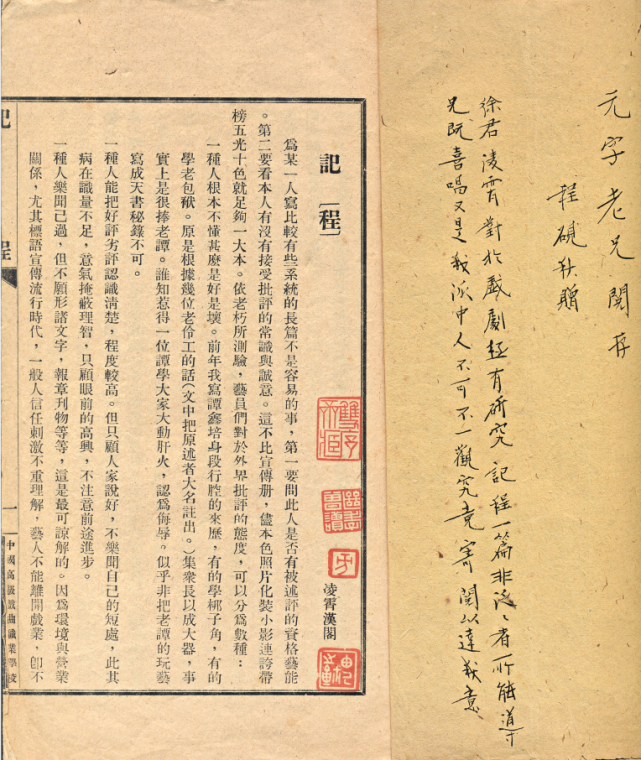 元字老兄閱存
程硯秋贈
徐君凌霄對於戲劇極有研究記程一篇非泛泛者所能導
兄既喜唱又是我派中人不可不一觀究竟寄閱以達我意
記「程」
凌霄漢閣
為某一人寫比較有些系統的長篇不是容易的事，第一要問此人是否有被述評的資格藝能
。第二要看本人有沒有接受批評的常識與誠意。這不比宣傳册，儘本色照片化裝小影連誇帶
榜五光十色就足夠一大本。依老朽所測驗，藝員們對於外界批評的態度，可以分為數種：
一種人根本不懂甚麼是好是壞。前年我寫譚鑫培身段行腔的來歷，有的學梆子角，有的
學老包猷。原是根據幾位老伶工的話（文中把原述者大名註出。）集衆長以成大器，事
實上是很捧老譚。誰知惹得一位譚學大家大動肝火，認為侮辱。似乎非把老譚的玩藝
寫成天書秘籙不可。
一種人能把好評劣評認識清楚，程度較高。但只顧人家說好，不樂聞自己的短處，此其
病在識量不足，意氣掩蔽理智，只顧眼前的高興，不注意前途進步。
一種人樂聞己過，但不願形諸文字，報章刊物等等，這是最可諒解的。因為環境與營業
關係，尤其標語宣傳流行時代，一般人信任刺激不重理解，藝人不能離開戲業，卽不
記
程
一
中國高級戲曲職業學校